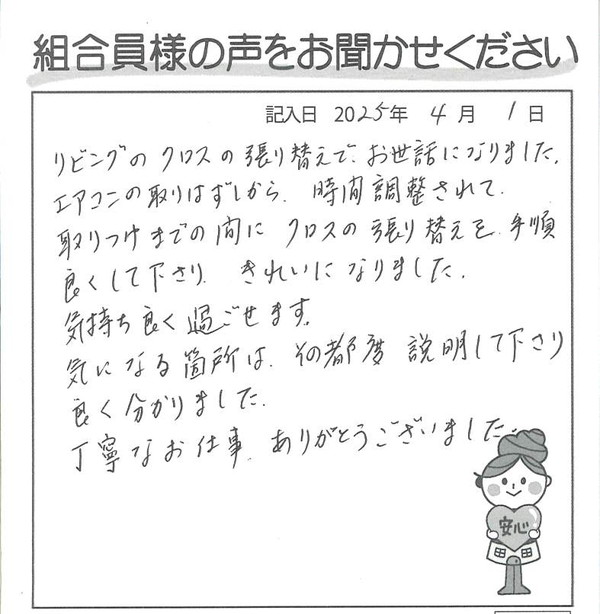 組合員様の声をお聞かせください
記入日 2025年 4月 1日
リビングのクロスの張り替えで、お世話になりました。
エアコンの取りはずしから、時間調整されて、
取りつけまでの間にクロスの張り替えを、手順
良くして下さり、きれいになりました。
気持ち良く過ごせます。
気になる箇所は、その都度説明して下さり
良く分かりました。
丁寧なお仕事、ありがとうございました。
安心